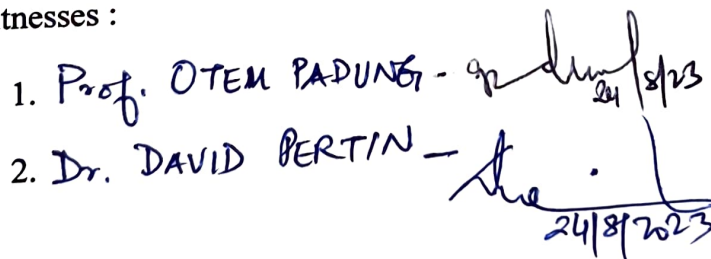 tnesses :
1. Prof. OTEM PADUNG - 24/8/23
2. Dr. DAVID PERTIN - 
24/8/2023